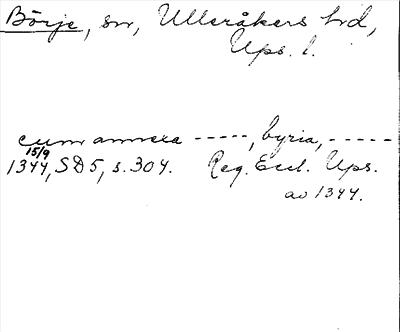 Börje, sn, Ulleråkers hd,
Ups. l.
cum annexa -----, byria, -----
15/9
1344, SD5, s. 304. Reg. Eccl. Ups.
av 1344.